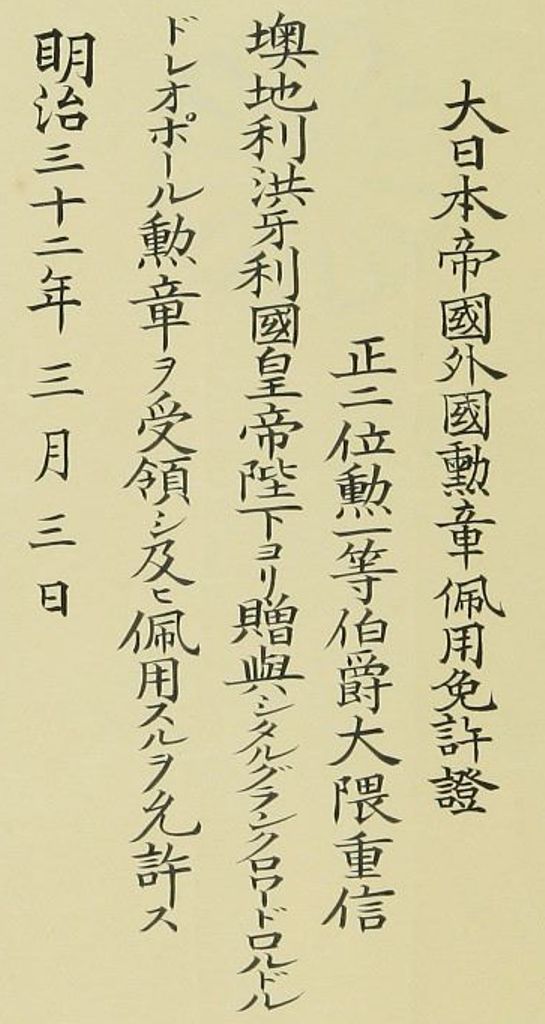 大日本帝國外國勲章佩用免許證
正二位勲一等伯爵大隈重信
墺地利洪牙利國皇帝陛下ヨリ贈與シタルグランクロワードロルドル
ドレオポール勲章ヲ受領シ及ヒ佩用スルヲ允許ス
明治三十二年三月三日